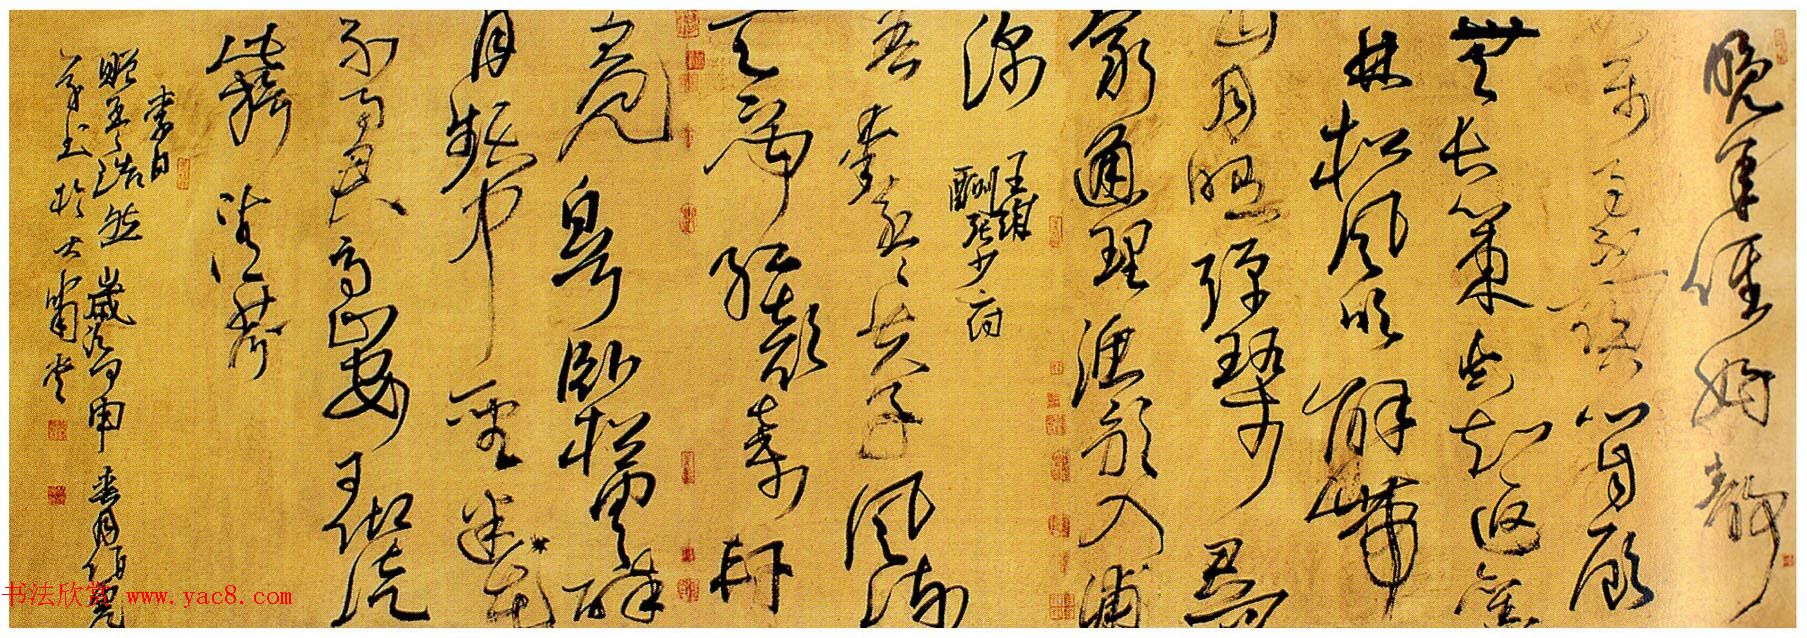 晚年惟好靜
萬事不關心自顧
無長策空知返舊
林松風吹解帶
山月照彈琴君問
窮通理漁歌入浦
深
王維
酬張少府
吾愛孟夫子風流
天下聞紅顏棄軒
冕白首臥松雲醉
月頻中聖迷花
不事君高山安可仰徒
此揖清芬
李白
贈孟浩然 歲次丙申 春月
书法欣赏 www.yac8.com